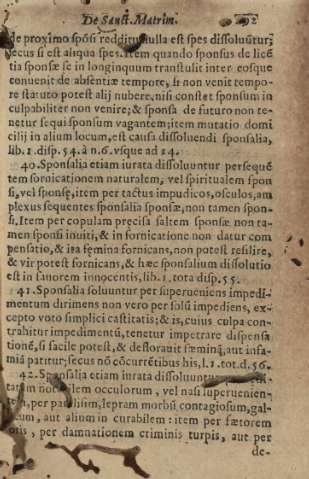 De Sanct. Matrim.
de proximo spósi redditur nulla est spes dissoluútur;
secus si est aliqua spes. Item quando sponsus de licé
tia sponsæ se in longinquum transtulit inter eosque
conuenit de absentiæ tempore, si non venit tempo-
re statuto potest alij nubere, nisi constet sponsum in
culpabiliter non venire; & sponsa de futuro non te-
netur sequi sponsum vagantem, item mutatio domi
cilij in alium locum, est causa dissoluendi sponsalia,
lib. 1. disp. 54. à n. 6. vsque ad 14.
40. Sponsalia etiam iurata dissoluuntur persequé
tem fornicationem naturalem, vel spiritualem spon
si, vel sponsę, item per tactus impudicos, osculos, am
plexus sequentes sponsalia sponsæ, non tamen spon-
si. Item per copulam pręcisa saltem sponsæ non ta-
men sponsi inuiti, & in fornicatione non datur com
pensatio, & ita fęmina fornicans, non potest resilire,
& vir potest fornicans, & hæc sponsalium dissolutio
est in fauorem innocentis, lib. 1. tota disp. 55.
41. Sponsalia soluuntur per superueniens impedi-
mentum dirimens non vero per solú impediens, ex-
cepto voto simplici castitatis; & is, cuius culpa con-
trahitur impedimentú, tenetur impetrare dispensa
tioné, si facile potest, & deflorauit fæminá, aut infa-
miá patitur; secus nó cócurrétibus his, l. 1. tot. d. 56.
42. Sponsalia etiam iurata dissoluuntur
tatem notabilem occulorum, vel nasi superuenien-
tem, per paralisim, lepram morbú contagiosum, gal-
cum, aut alium in curabilem: item per fætorem
oris, per damnationem criminis turpis, aut per
de-